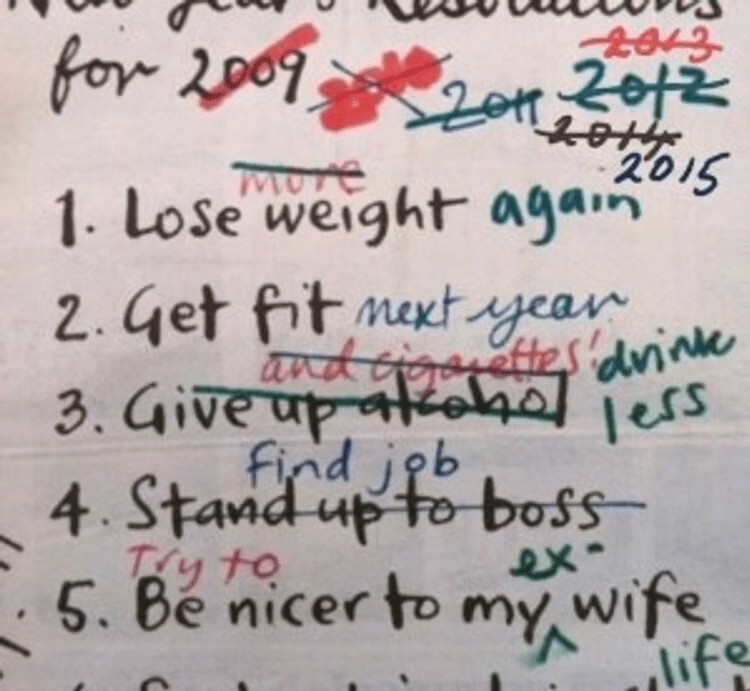 New Year's Resolutions
2013
for 2009 2011 2012
2014
2015
more
1. Lose weight again
2. Get fit next year
and cigarettes! drink
3. Give up alcohol less
find job
4. Stand up to boss
Try to ex-
5. Be nicer to my wife
life